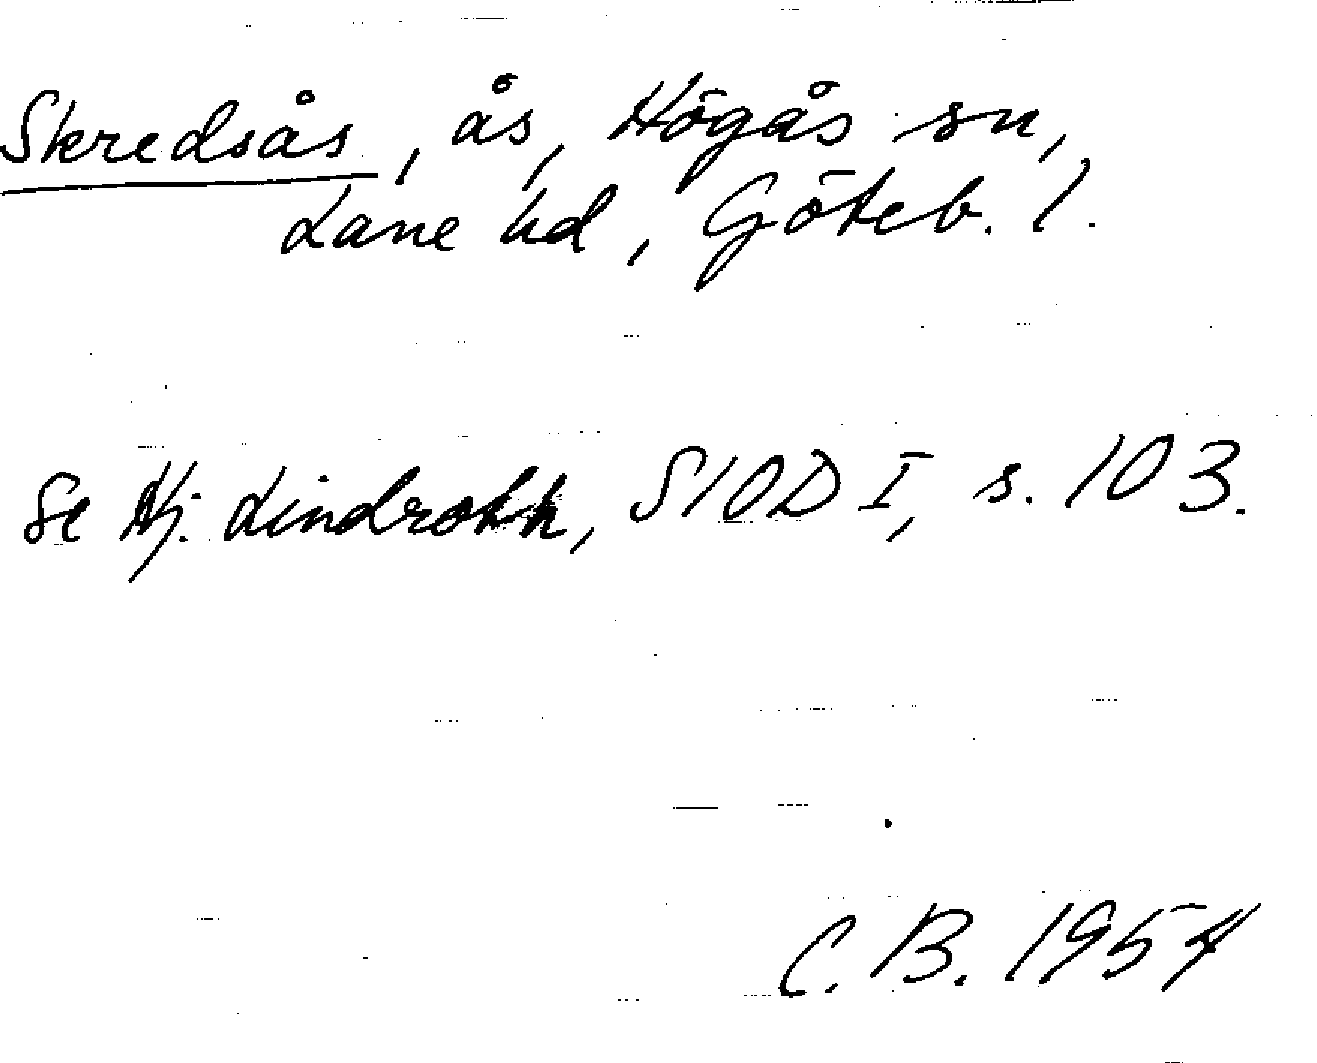 Skredsås, ås, Högås sn,
Lane hd, Göteb. l.
Se Hj. Lindroth, SIOD I, s. 103.
C. B. 1954